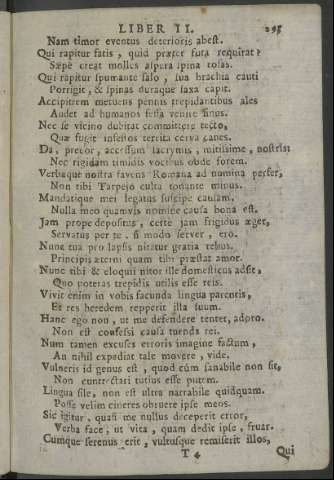 LIBER II. 295
Nam timor eventus deterioris abest.
Qui rapitur fatis, quid præter fata requirat?
Sæpe creat molles aspera spina rosas.
Qui rapitur spumante salo, sua brachia cauti
Porrigit, & spinas duraque saxa capit.
Accipitrem metuens pennis trepidantibus ales
Audet ad humanos fessa venire sinus.
Nec se vicino dubitat committere tecto,
Quæ fugit infestos territa cerva canes.
Da, precor, accessum lacrymis, mitissime, nostris;
Nec rigidam timidis vocibus obde forem.
Verbaque nostra favens Romana ad numina perfer,
Non tibi Tarpejo culta tonante minus.
Mandatique mei legatus suscipe causam.
Nulla meo quamvis nomine causa bona est.
Jam prope depositus, certe jam frigidus æger,
Servatus per te, si modo server, ero.
Nunc tua pro lapsis nitatur gratia rebus.
Principis æterni quam tibi præstat amor.
Nunc tibi & eloquii nitor ille domesticus adsit,
Quo poteras trepidis utilis esse reis.
Vivit enim in vobis facunda lingua parentis,
Et res heredem repperit illa suum.
Hanc ego non, ut me defendere tentet, adoro.
Non est confessi causa tuenda rei.
Num tamen excuses erroris imagine factum,
An nihil expediat tale movere, vide.
Vulneris id genus est, quod cùm sanabile non sit,
Non contrectari tutius esse putem.
Lingua sile, non est ultra narrabile quidquam.
Posse velim cineres obruere ipse meos.
Sic igitur, quasi me nullus deceperit error,
Verba face, ut vita, quam dedit ipse, fruar.
Cumque serenus erit, vultusque remiserit illos,
T 4 Qui